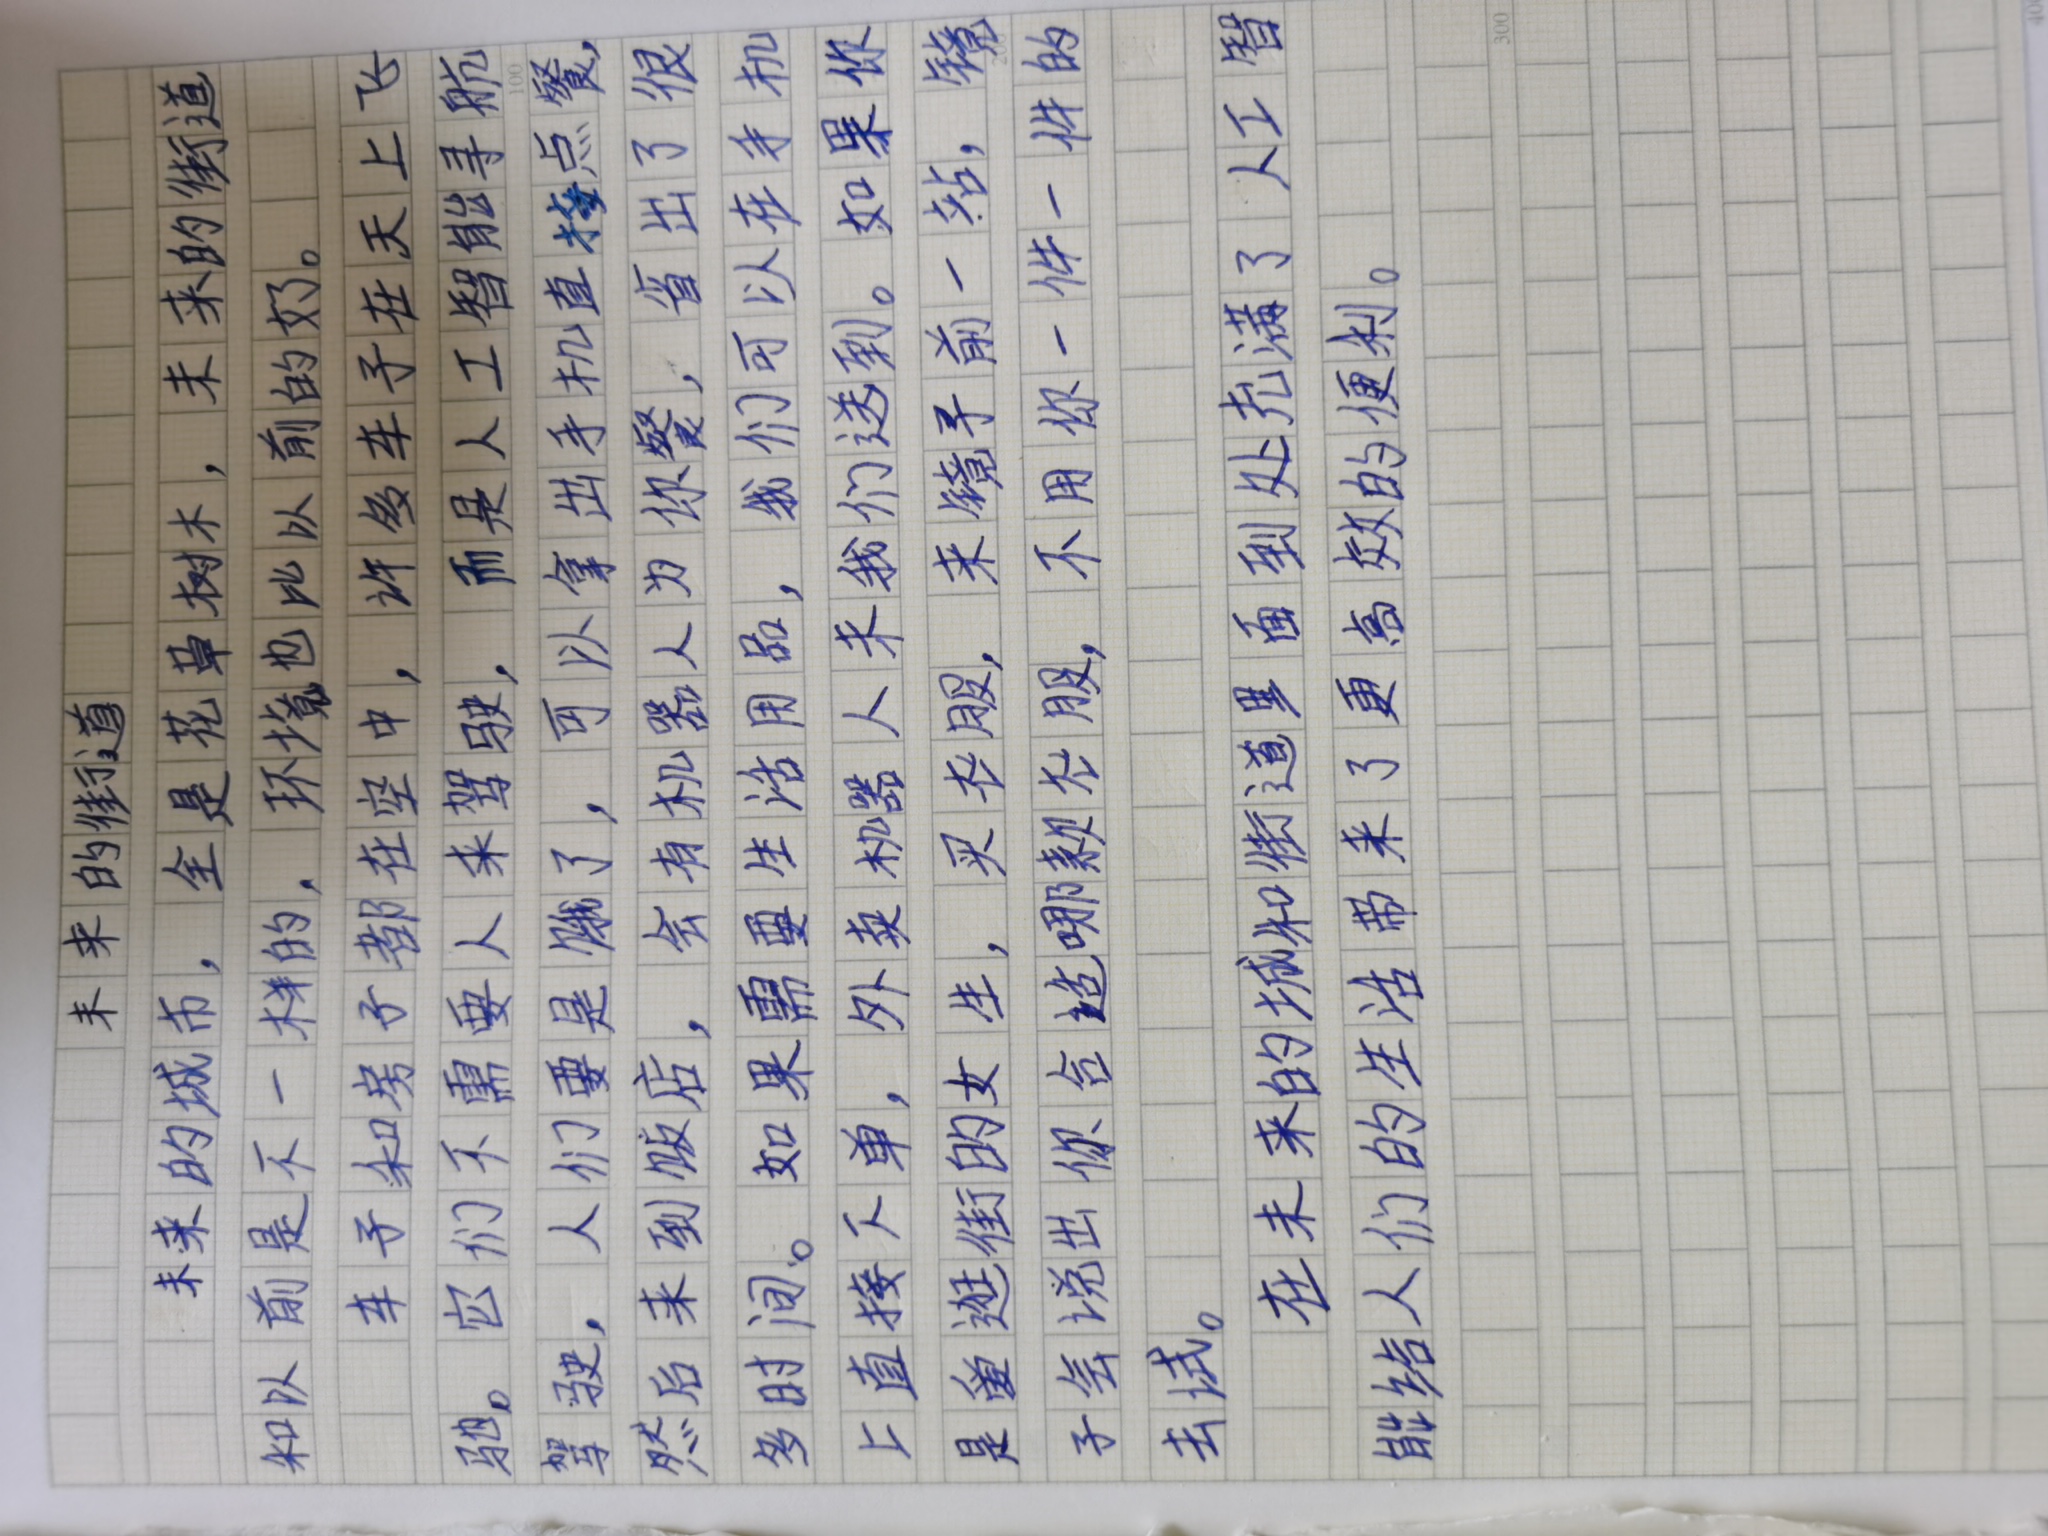 未来的街道
未来的城市，全是花草树木，未来的街道
和以前是不一样的，环境也比以前的好了。
车子和房子都在空中，许多车子在天上飞
驰。它们不需要人来驾驶，而是人工智能导航
100
驾驶，人们要是饿了，可以拿出手机直接点餐，
然后来到饭店，会有机器人为你餐，省出了很
多时间。如果需要生活用品，我们可以在手机
上直接下单，外卖机器人来我们送到。如果你
是爱逛街的女生，买衣服，来镜子前一站，镜
200
子会说出你合适哪款衣服，不用你一件一件的
去试。
在未来的城和街道里面到处充满了人工智
能给人们的生活带来了更高效的便利。
300
400